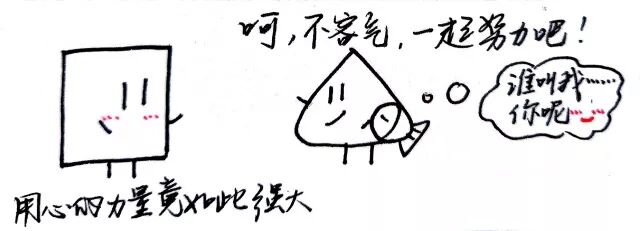 呵，不客气，一起努力吧！
谁叫我……
你呢
用心的力量竟如此强大